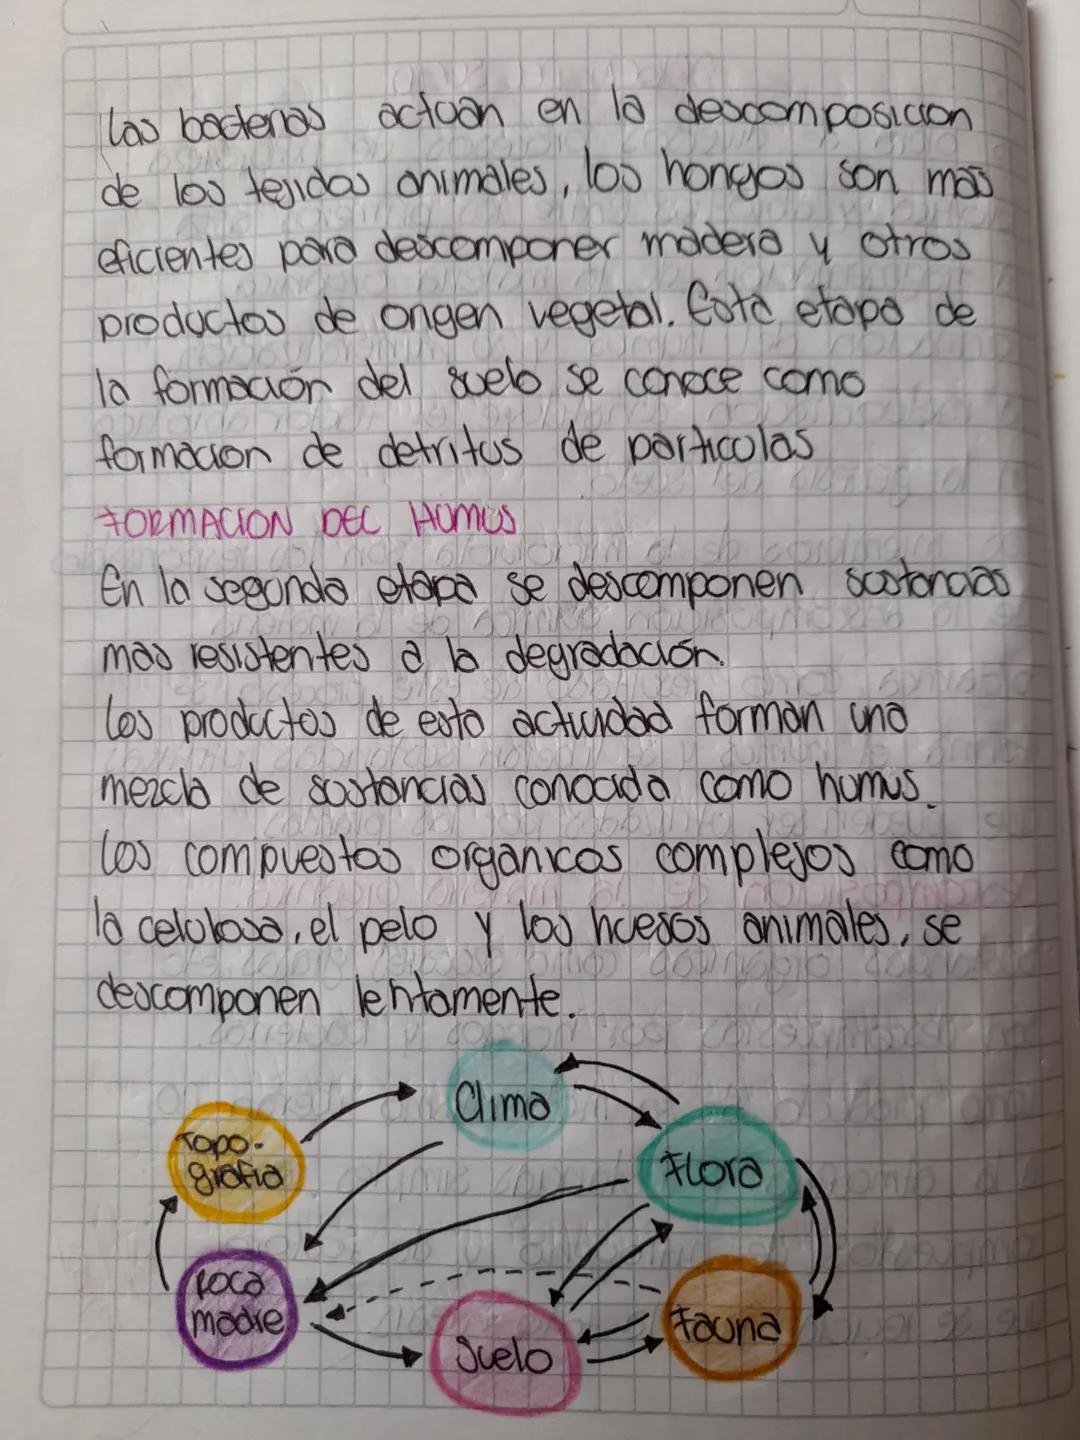 Las bacterias actuan en la descomposicion
de los tejidos animales, los hongos son mas
eficientes para descomponer madera y otros
productos de origen vegetal. Esta etapa de
la formación del suelo se conoce como
formacion de detritus de particulas
FORMACION DEL HUMUS
En la segunda etapa se descomponen sustancias
mas resistentes a la degradación.
Los productos de esta actividad forman una
mezcla de sustancias conocida como humus.
Los compuestos organicos complejos como
la celulosa, el pelo y los huesos animales, se
descomponen lentamente.
Clima
Topo-
grafia
Flora
roca
madre
Fauna
Suelo